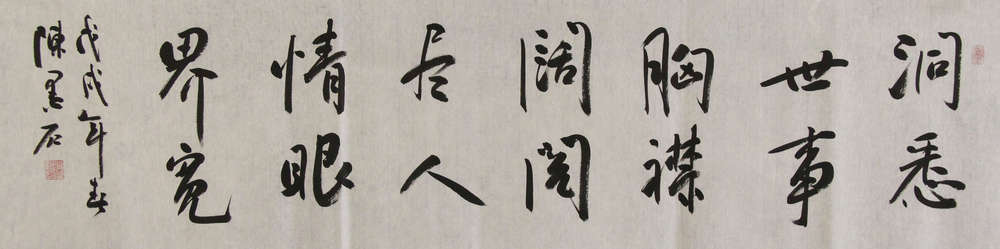 洞悉
世事
胸襟
阔阅
尽人
情眼
界宽
戊戌年春
陈墨石